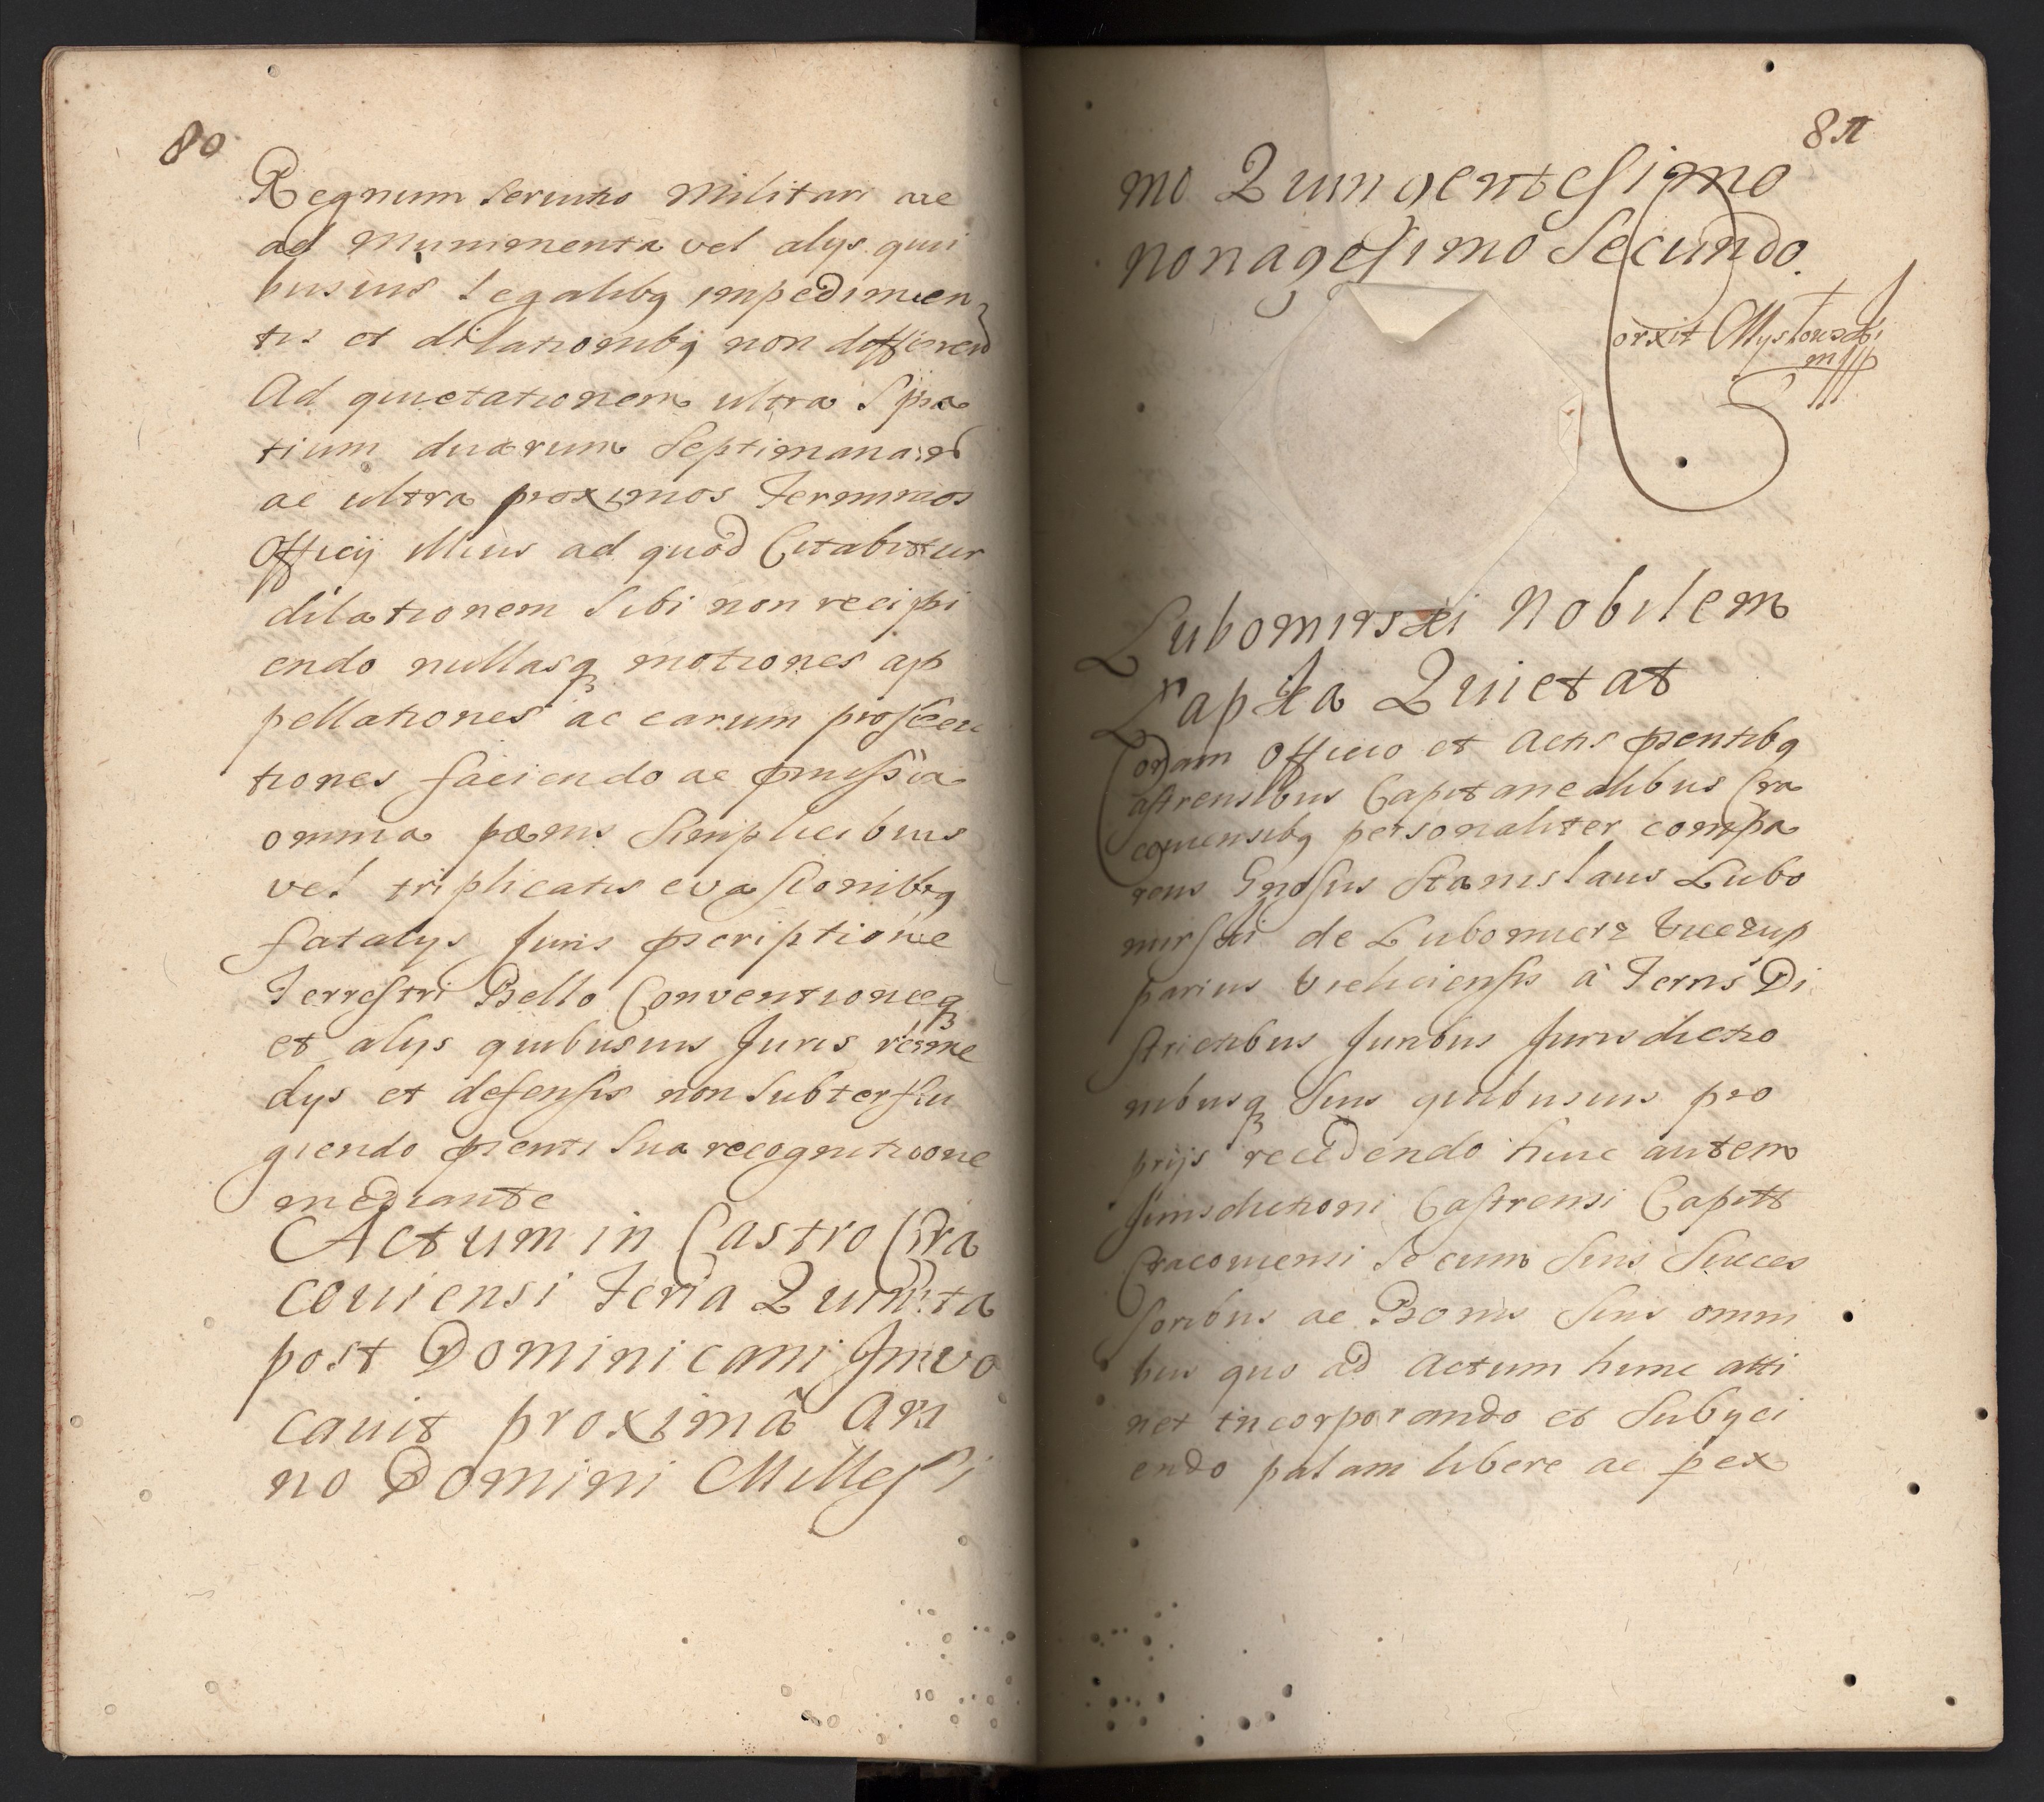 80
Regnum servitio Militari ac
ad Munimenta vel alys qui
busuis Legalibq impedimen
tis et dilationibq non differend
Ad quietationem ultra Spa
tium duarum Septimanarum
ac ultra proximos Terminos
Officij illius ad quod Citabitur
dilationem Sibi non recipi
endo nullasq motiones ap
pellationes ac earum prosecu
tiones faciendo ac pmissa
omnia pœnis Simplicibus
vel triplicatis evasionibq
fatalys Juris pscriptione
Terrestri Bello Conventioneq
et alys quibusuis Juris reme
dys et defensis non Subterfu
giendo psenti Sua recognitione
mediante
Actum in Castro Cra
couiensi Feria Quinta
post Dominicam Inuo
cauit proximâ An
no Domini Millesi
81
mo Quingentesimo
nonagesimo Secundo.
orxit Myszkowski
mpp
Lubomirski Nobilem
Łapka Quietat
Coram Officio et Actis psentibq
Castrensibus Capitanealibus Cra
couiensibq personaliter compa
rens Gnosus Stanislaus Lubo
mirski de Lubomierz Vicezup
parius Vieliciensis à Terris Di
strictibus Juribus Jurisdictio
nibusq Suis quibusuis pro
prijs recedendo huic autem
Jurisdictioni Castrensi Capitt
Cracouiensi Se cum Suis Succes
soribus ac Bonis Suis omni
bus quo ad Actum hunc atti
net incorporando et Subyci
endo palam libere ac pex